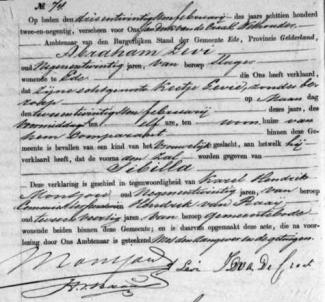 № 74
Op heden den drieentwintigsten februarij des jaars achttien honderd
twee-en-negentig, verscheen voor Ons
Ambtenaar van den Burgerlijken Stand der Gemeente Ede, Provincie Gelderland,
Abraham Levi
oud Negenentwintig jaren, van beroep Slager
wonende te Ede die Ons heeft verklaard,
dat zijne echtgenoote Levie, zonder be-
roep op Maan dag
den tweeentwintigsten februarij dezes jaars, des
voormiddags ten elf ure, ten woon huize van
hem Comparant binnen deze Ge-
meente is bevallen van een kind van het Vrouwelijk geslacht, aan hetwelk hij
verklaard heeft, dat de voorna men zal worden gegeven van
Sibilla
Deze verklaring is geschied in tegenwoordigheid van Karel Hendrik
oud Negenentwintig jaren, van beroep
en van Hendrik van Raaij
oud twee en veertig jaren, van beroep gemeentebode
beiden binnen deze Gemeente; en is daarvan opgemaakt deze acte, die na voor-
lezing door Ons Ambtenaar is geteekend, Met den Aangever en de getuigen.
A Levi